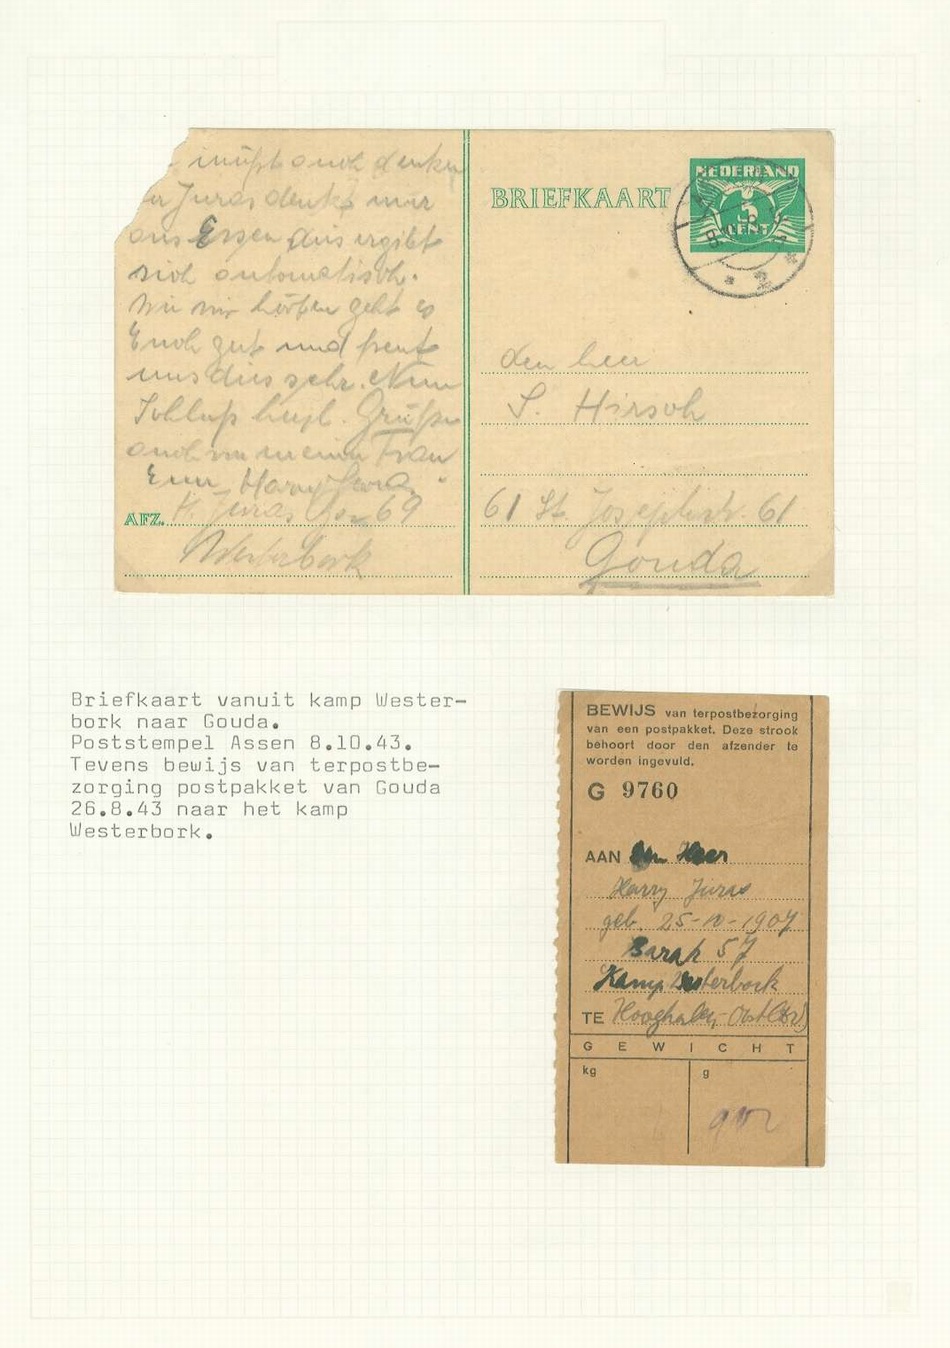 müßt auch denken
Juras denkt nur
ans Essen, dies ergibt
sich automatisch.
Wie wir hörten geht es
Euch gut und freut
uns dies sehr. Nun
Schluß herzl. Grüße
auch von meiner Frau
Euer Harry Juras
AFZ. H. Juras 69
Westerbork
BRIEFKAART
NEDERLAND
5
CENT
2
den heer
S. Hirsch
61 St. Josephstr. 61
Gouda
Briefkaart vanuit kamp Wester-
bork naar Gouda.
Poststempel Assen 8.10.43.
Tevens bewijs van terpostbe-
zorging postpakket van Gouda
26.8.43 naar het kamp
Westerbork.
BEWIJS van terpostbezorging
van een postpakket. Deze strook
behoort door den afzender te
worden ingevuld.
G 9760
AAN den Heer
Harry Juras
geb. 25-10-1907
Barak 57
Kamp Westerbork
TE Hooghalen-Oost (Dr)
GEWICHT
kg g